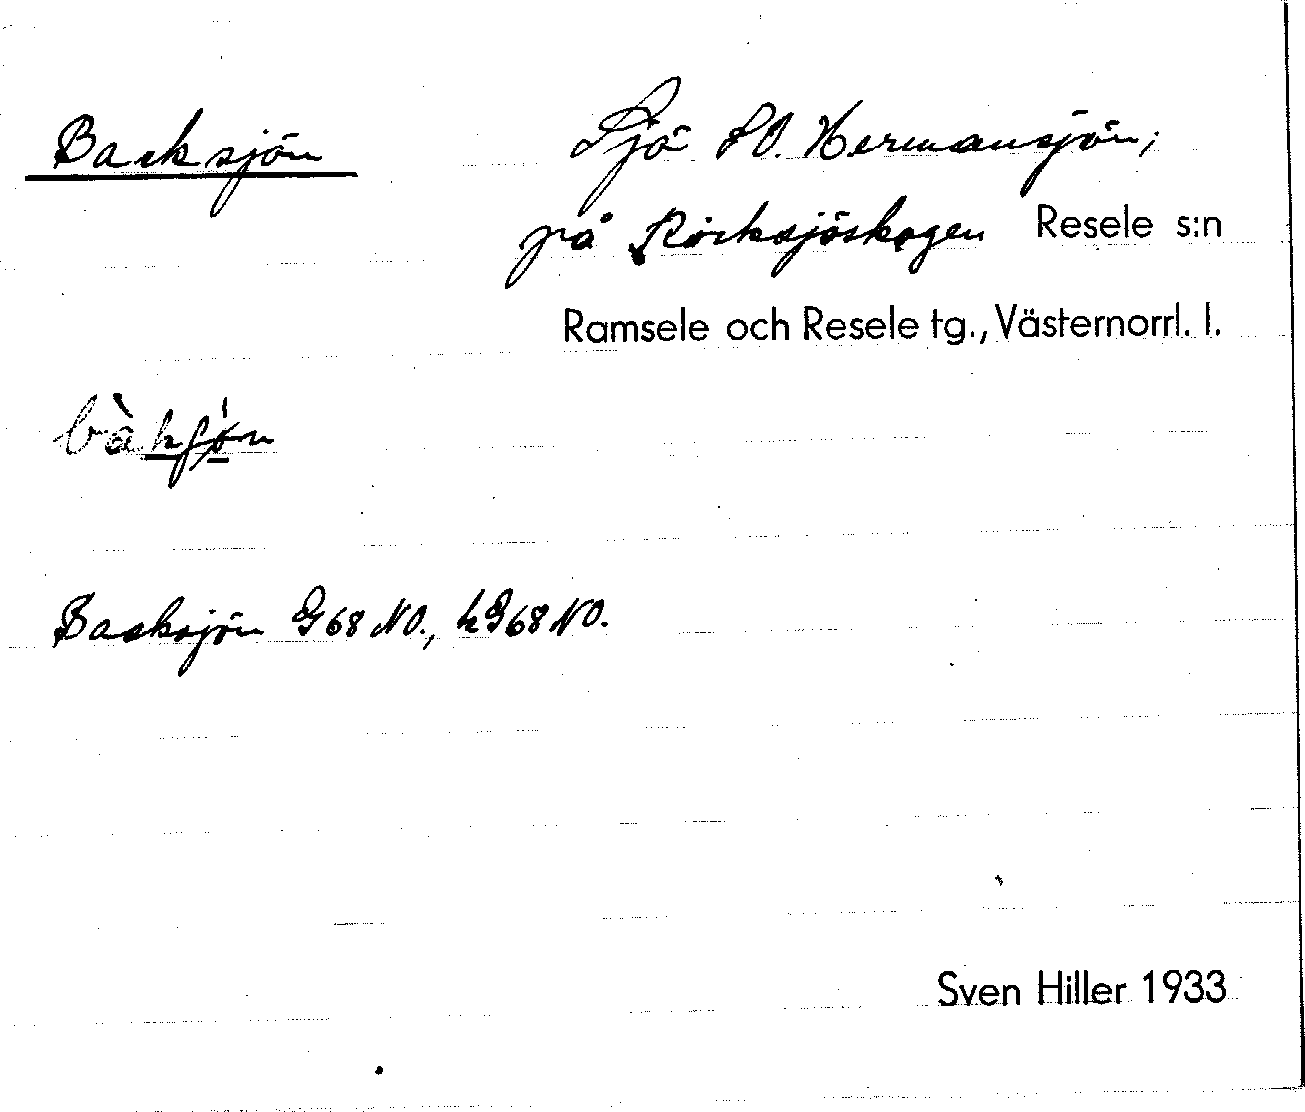 Backsjön
Sjö SO. Hermansjön;
på Rörksjöskogen Resele s:n
Ramsele och Resele tg., Västernorrl. l.
Backsjön G68 NO., hG68 NO.
Sven Hiller 1933